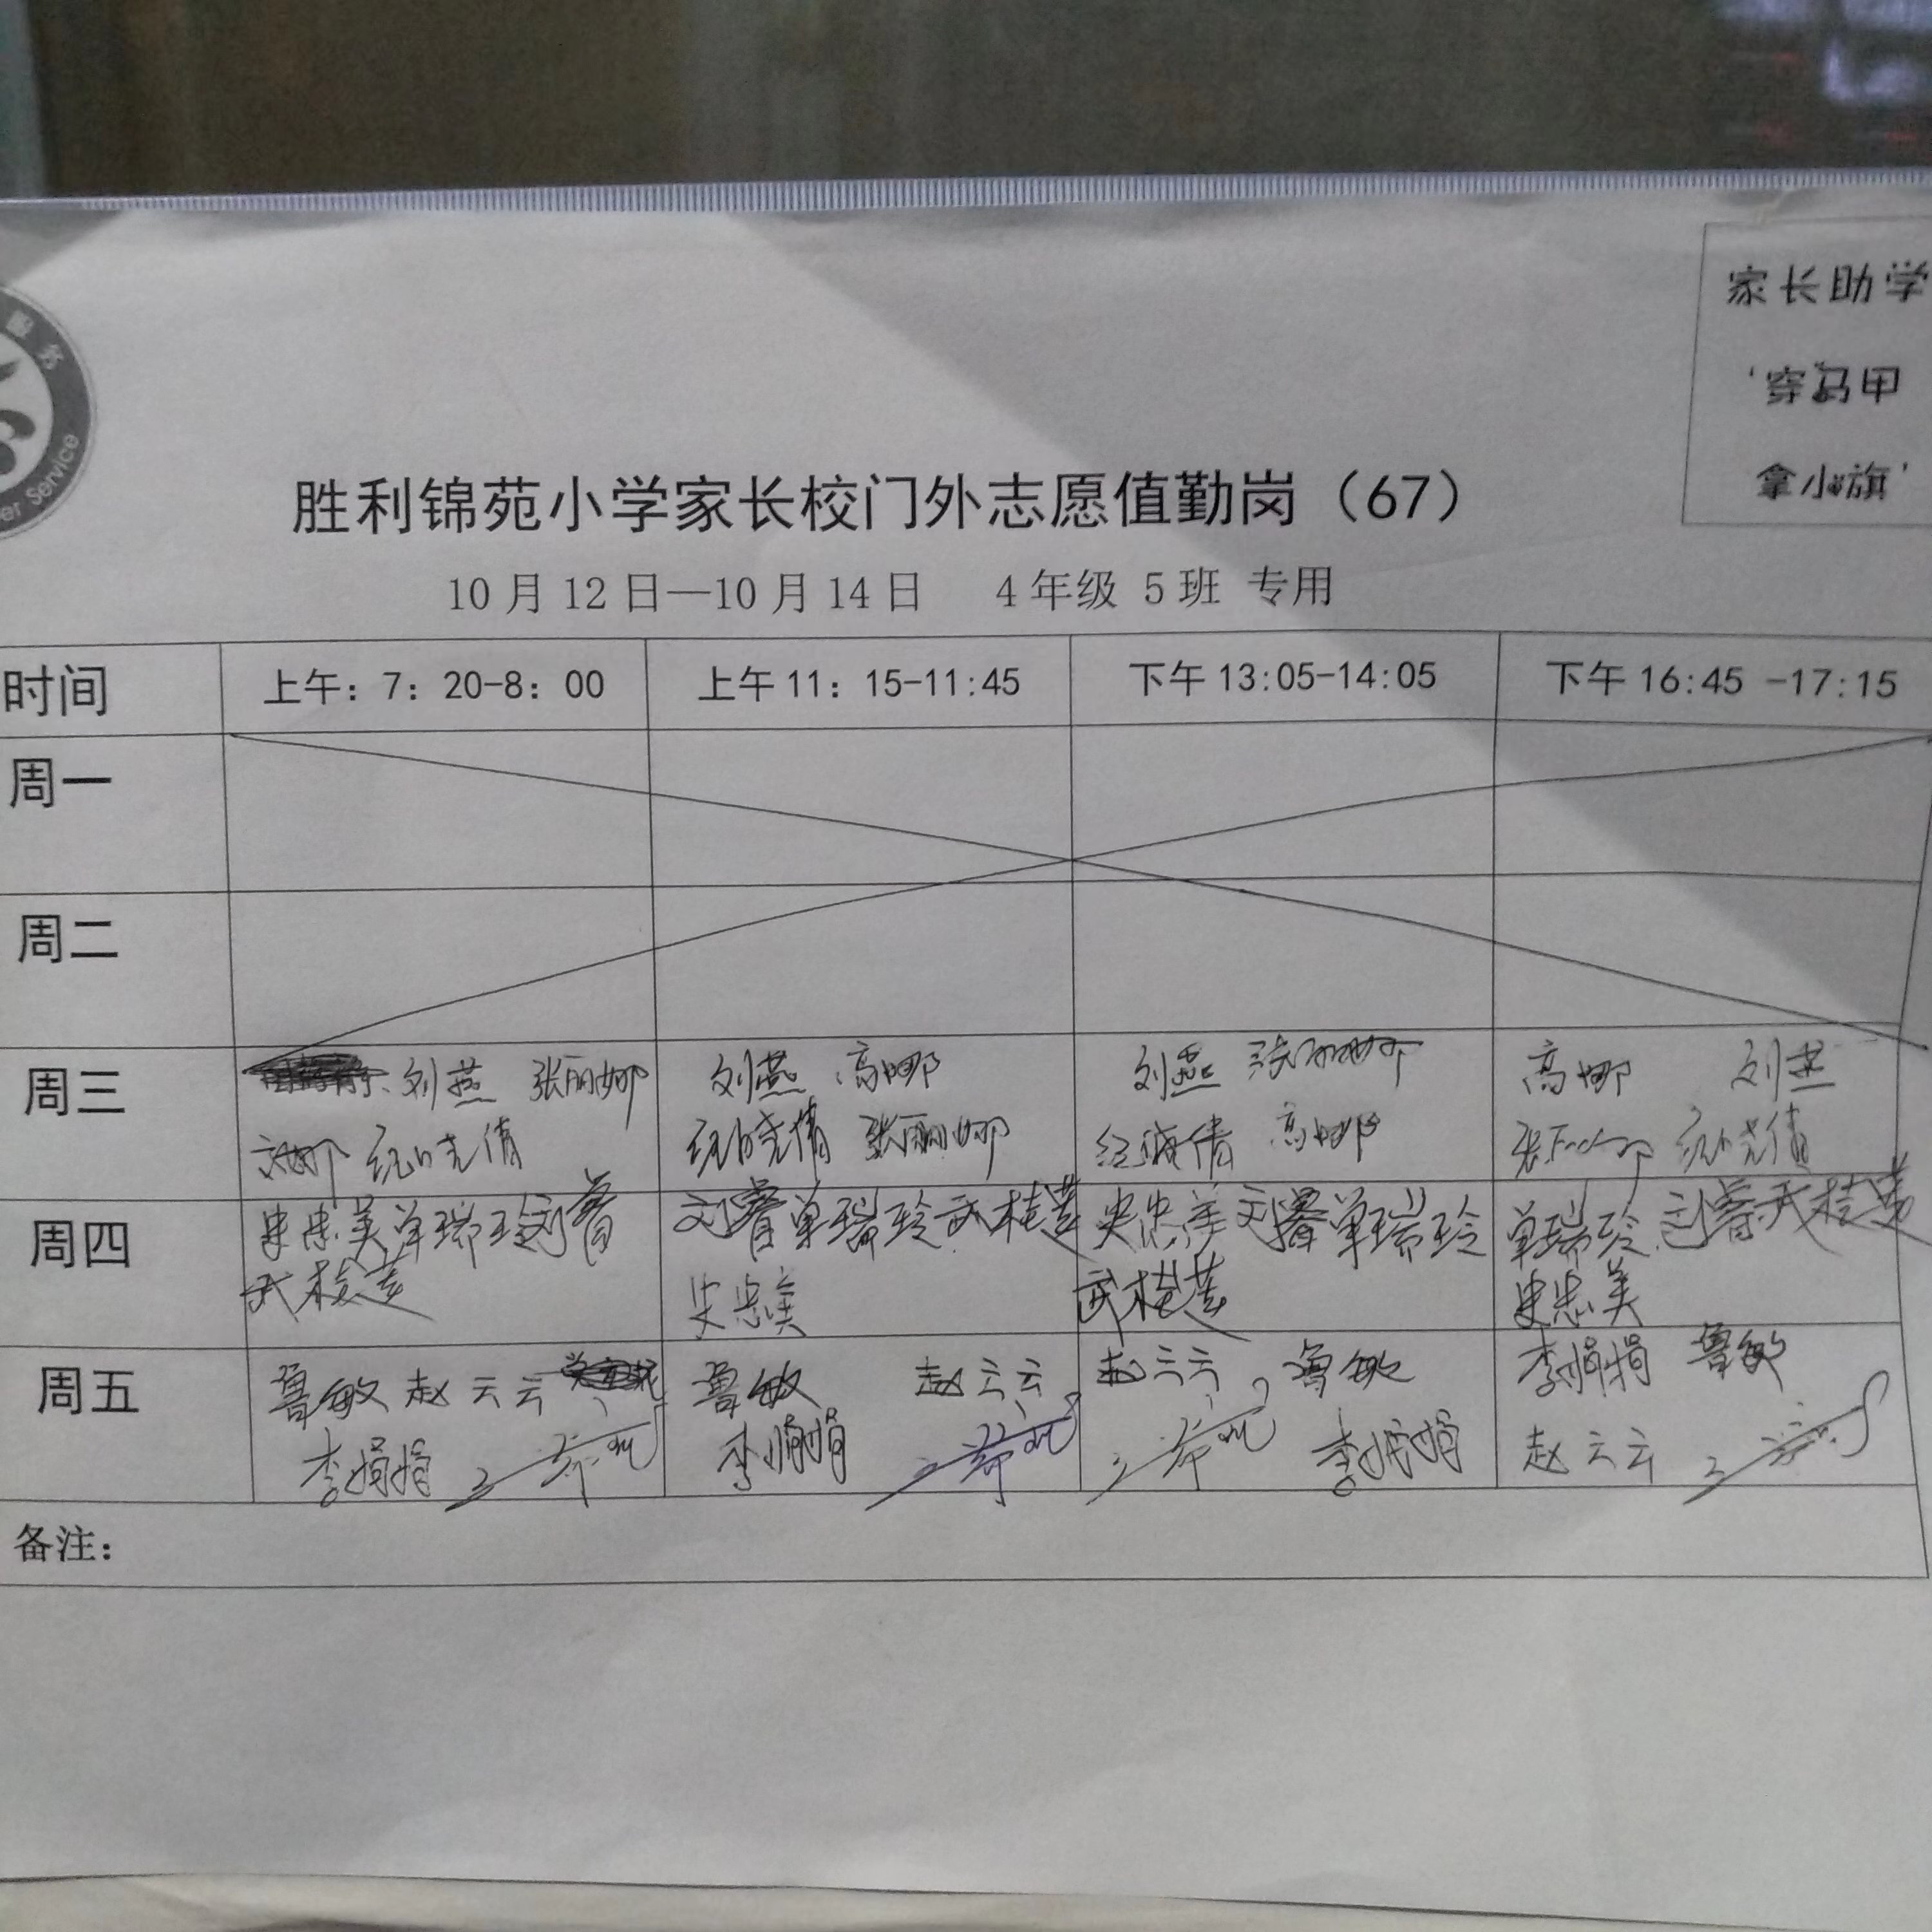 服务
er Service
家长助学
'穿马甲
拿小旗'
胜利锦苑小学家长校门外志愿值勤岗（67）
10月12日—10月14日 4年级 5班 专用
时间 上午：7：20-8：00 上午11：15-11:45 下午13:05-14:05 下午16:45 -17:15
周一
周二
周三 刘燕 张丽娜 刘燕 高娜 刘燕 张丽娜 高娜 刘燕
纪晓倩 纪晓倩 张丽娜 纪晓倩 高娜 纪晓倩
周四 史忠美 单瑞玲 刘睿 刘睿 单瑞玲 武桂莲 史忠美 刘睿 单瑞玲 单瑞玲 刘睿 武桂莲
武桂莲 史忠美 武桂莲 史忠美
周五 鲁敏 赵云云 鲁敏 赵云云 赵云云 鲁敏 李娟娟 鲁敏
李娟娟 李娟娟 李娟娟 赵云云
备注：